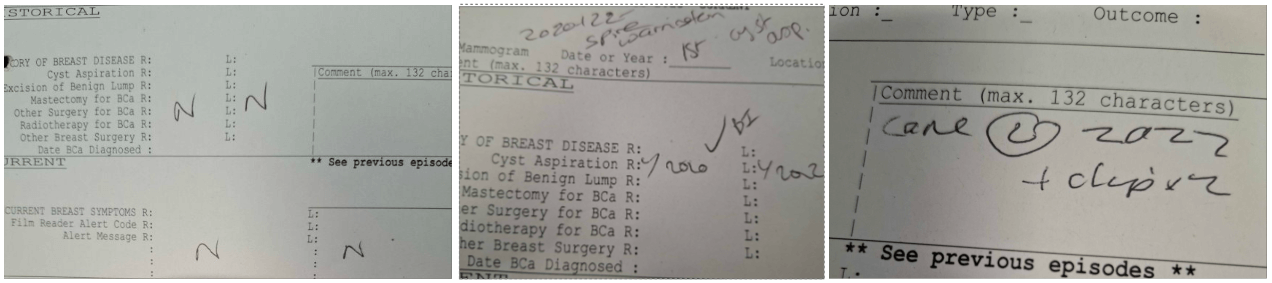 STORICAL
ORY OF BREAST DISEASE R: L:
Cyst Aspiration R: L:
Excision of Benign Lump R: L:
Mastectomy for BCa R: L:
Other Surgery for BCa R: L:
Radiotherapy for BCa R: L:
Other Breast Surgery R: L:
Date BCa Diagnosed :
N N
Comment (max. 132 cha
URRENT
** See previous episode
CURRENT BREAST SYMPTOMS R: L:
Film Reader Alert Code R: L:
Alert Message R: L:
N N
2020/22
spire
cyst
asp.
Mammogram Date or Year : 1st Locatio
nt (max. 132 characters)
TORICAL
Y OF BREAST DISEASE R: L:
Cyst Aspiration R: Y 2020 L: Y
sion of Benign Lump R: L:
Mastectomy for BCa R: L:
er Surgery for BCa R: L:
diotherapy for BCa R: L:
her Breast Surgery R: L:
Date BCa Diagnosed :
ENT
ion :_ Type :_ Outcome :
Comment (max. 132 characters)
2022
+ clip x2
** See previous episodes **
L: